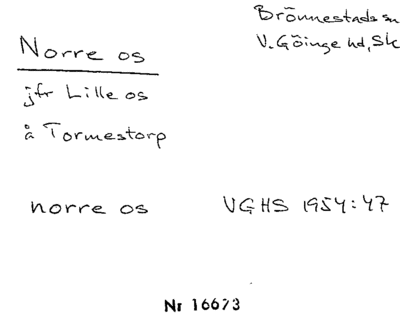 Norre os
Brönnestads sn
V. Göinge hd, Sk
jfr Lille os
å Tormestorp
norre os VGHS 1954:47
Nr 16673